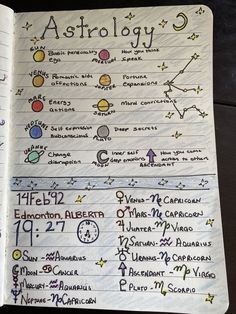 Astrology
SUN
Basic personality
ego
MERCURY
How you think
speak
VENUS
Romantic side
affections
JUPITER
Fortune
Expansions
MARS
Energy
actions
SATURN
Moral convictions
NEPTUNE
Self expression
subconscious
PLUTO
Deep secrets
URANUS
Change
disruption
MOON
Inner self
deep emotions
ASCENDANT
How you come
across to others
14 Feb '92
Edmonton, ALBERTA
19:27
☉ SUN - ♒ AQUARIUS
☾ MOON - ♋ CANCER
☿ MERCURY - ♒ AQUARIUS
♆ NEPTUNE - ♑ CAPRICORN
♀ VENUS - ♑ CAPRICORN
♂ MARS - ♑ CAPRICORN
♃ JUPITER - ♍ VIRGO
♄ SATURN - ♒ AQUARIUS
♅ URANUS - ♑ CAPRICORN
ASCENDANT - ♍ VIRGO
♇ PLUTO - ♏ SCORPIO